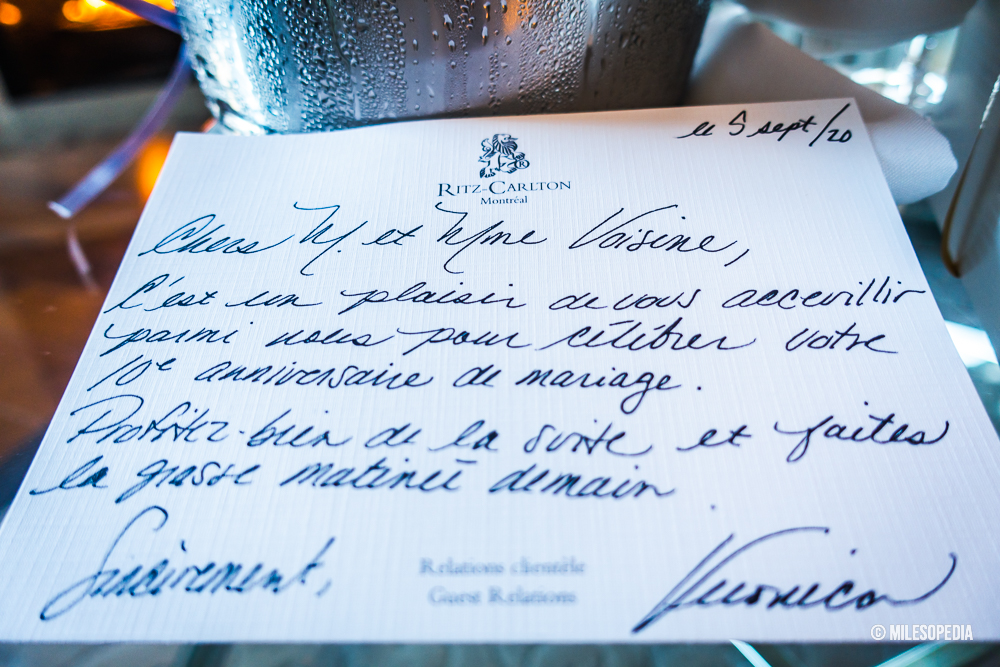 le 5 sept/20
RITZ-CARLTON
Montréal
Chers M. et Mme Voisine,
C'est un plaisir de vous accevillir
parmi nous pour célébrer votre
10e anniversaire de mariage.
Profitez-bien de la suite et faites
la grasse matineé demain.
Sincèrement,
Relations clientèle
Guest Relations
Veronica
© MILESOPEDIA